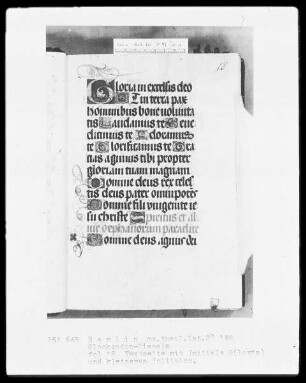 18
Gloria in excelsis deo
Et in terra pax
hominibus bone volunta
tis Laudamus te Bene
dicimus te Adoramus
te Glorificamus te Gra
tias agimus tibi propter
gloriam tuam magnam
Domine deus rex celes
tis deus pater omnipotens
Domine fili unigenite ie
su christe Spiritus et al
me orphanorum paraclite
Domine deus agnus dei
Berlin ms.theol.lat.2° 148
Glockendon-Missale
fol 18 Textseite mit Initiale G(loria)
und kleineren Initialen.